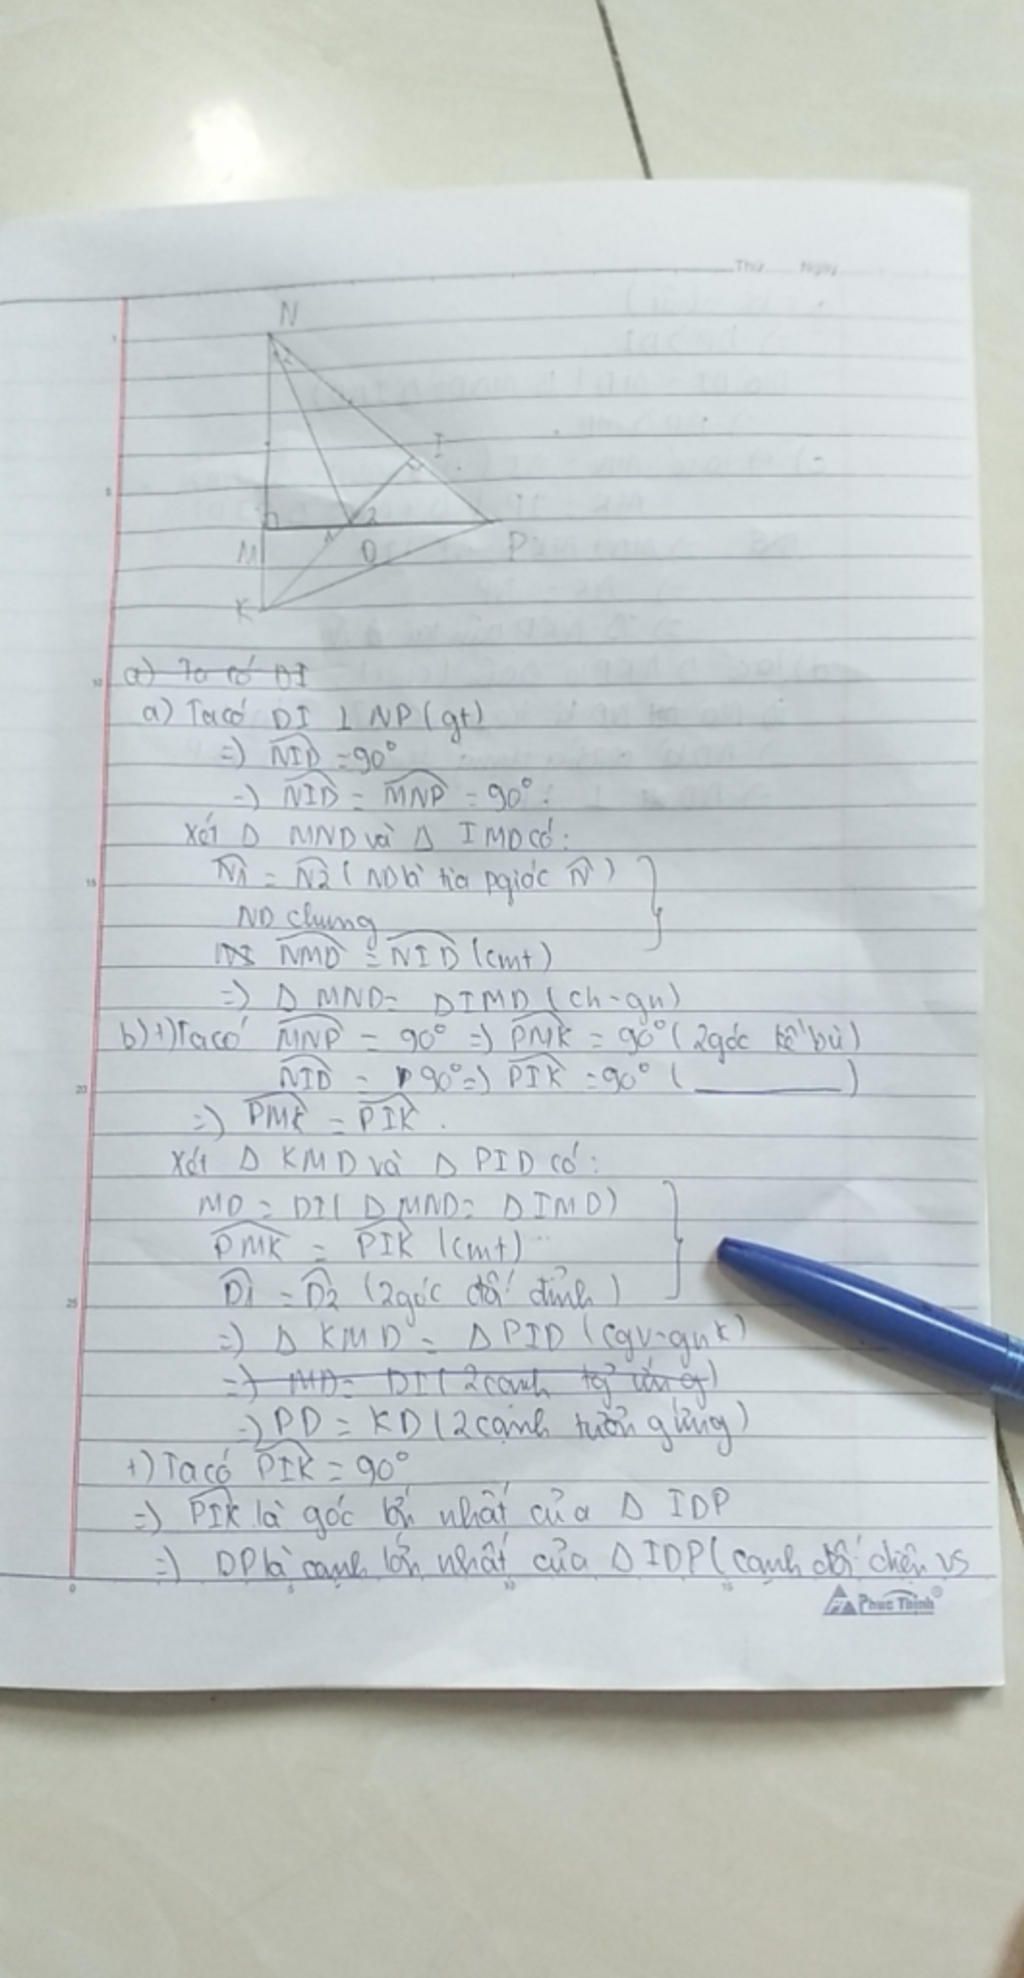 Thứ Ngày
N
2
I
2
M 1 D P
K
a) Ta có DI
a) Ta có DI ⊥ NP (gt)
=) NID = 90°
=) NID = MNP = 90°.
Xét Δ MND và Δ IMD có:
N1 = N2 (ND là tia pgiác N)
ND chung
NMD = NID (cmt)
=) Δ MND = Δ IMD (ch-gn)
b) +) Ta có MNP = 90° =) PMK = 90° (2 góc kề bù)
NID = 90° =) PIK = 90° ( )
=) PMK = PIK.
Xét Δ KMD và Δ PID có:
MD = DI ( Δ MND = Δ IMD)
PMK = PIK (cmt)
D1 = D2 (2 góc đối đỉnh)
=) Δ KMD = Δ PID (cgv-gnk)
=) MD = DI (2 cạnh tg ứng)
=) PD = KD (2 cạnh tương ứng)
+) Ta có PIK = 90°
=) PIK là góc lớn nhất của Δ IDP
=) DP là cạnh lớn nhất của Δ IDP (cạnh đối diện vs
Phuc Thinh
0 5 10 15
1
5
10
15
20
25